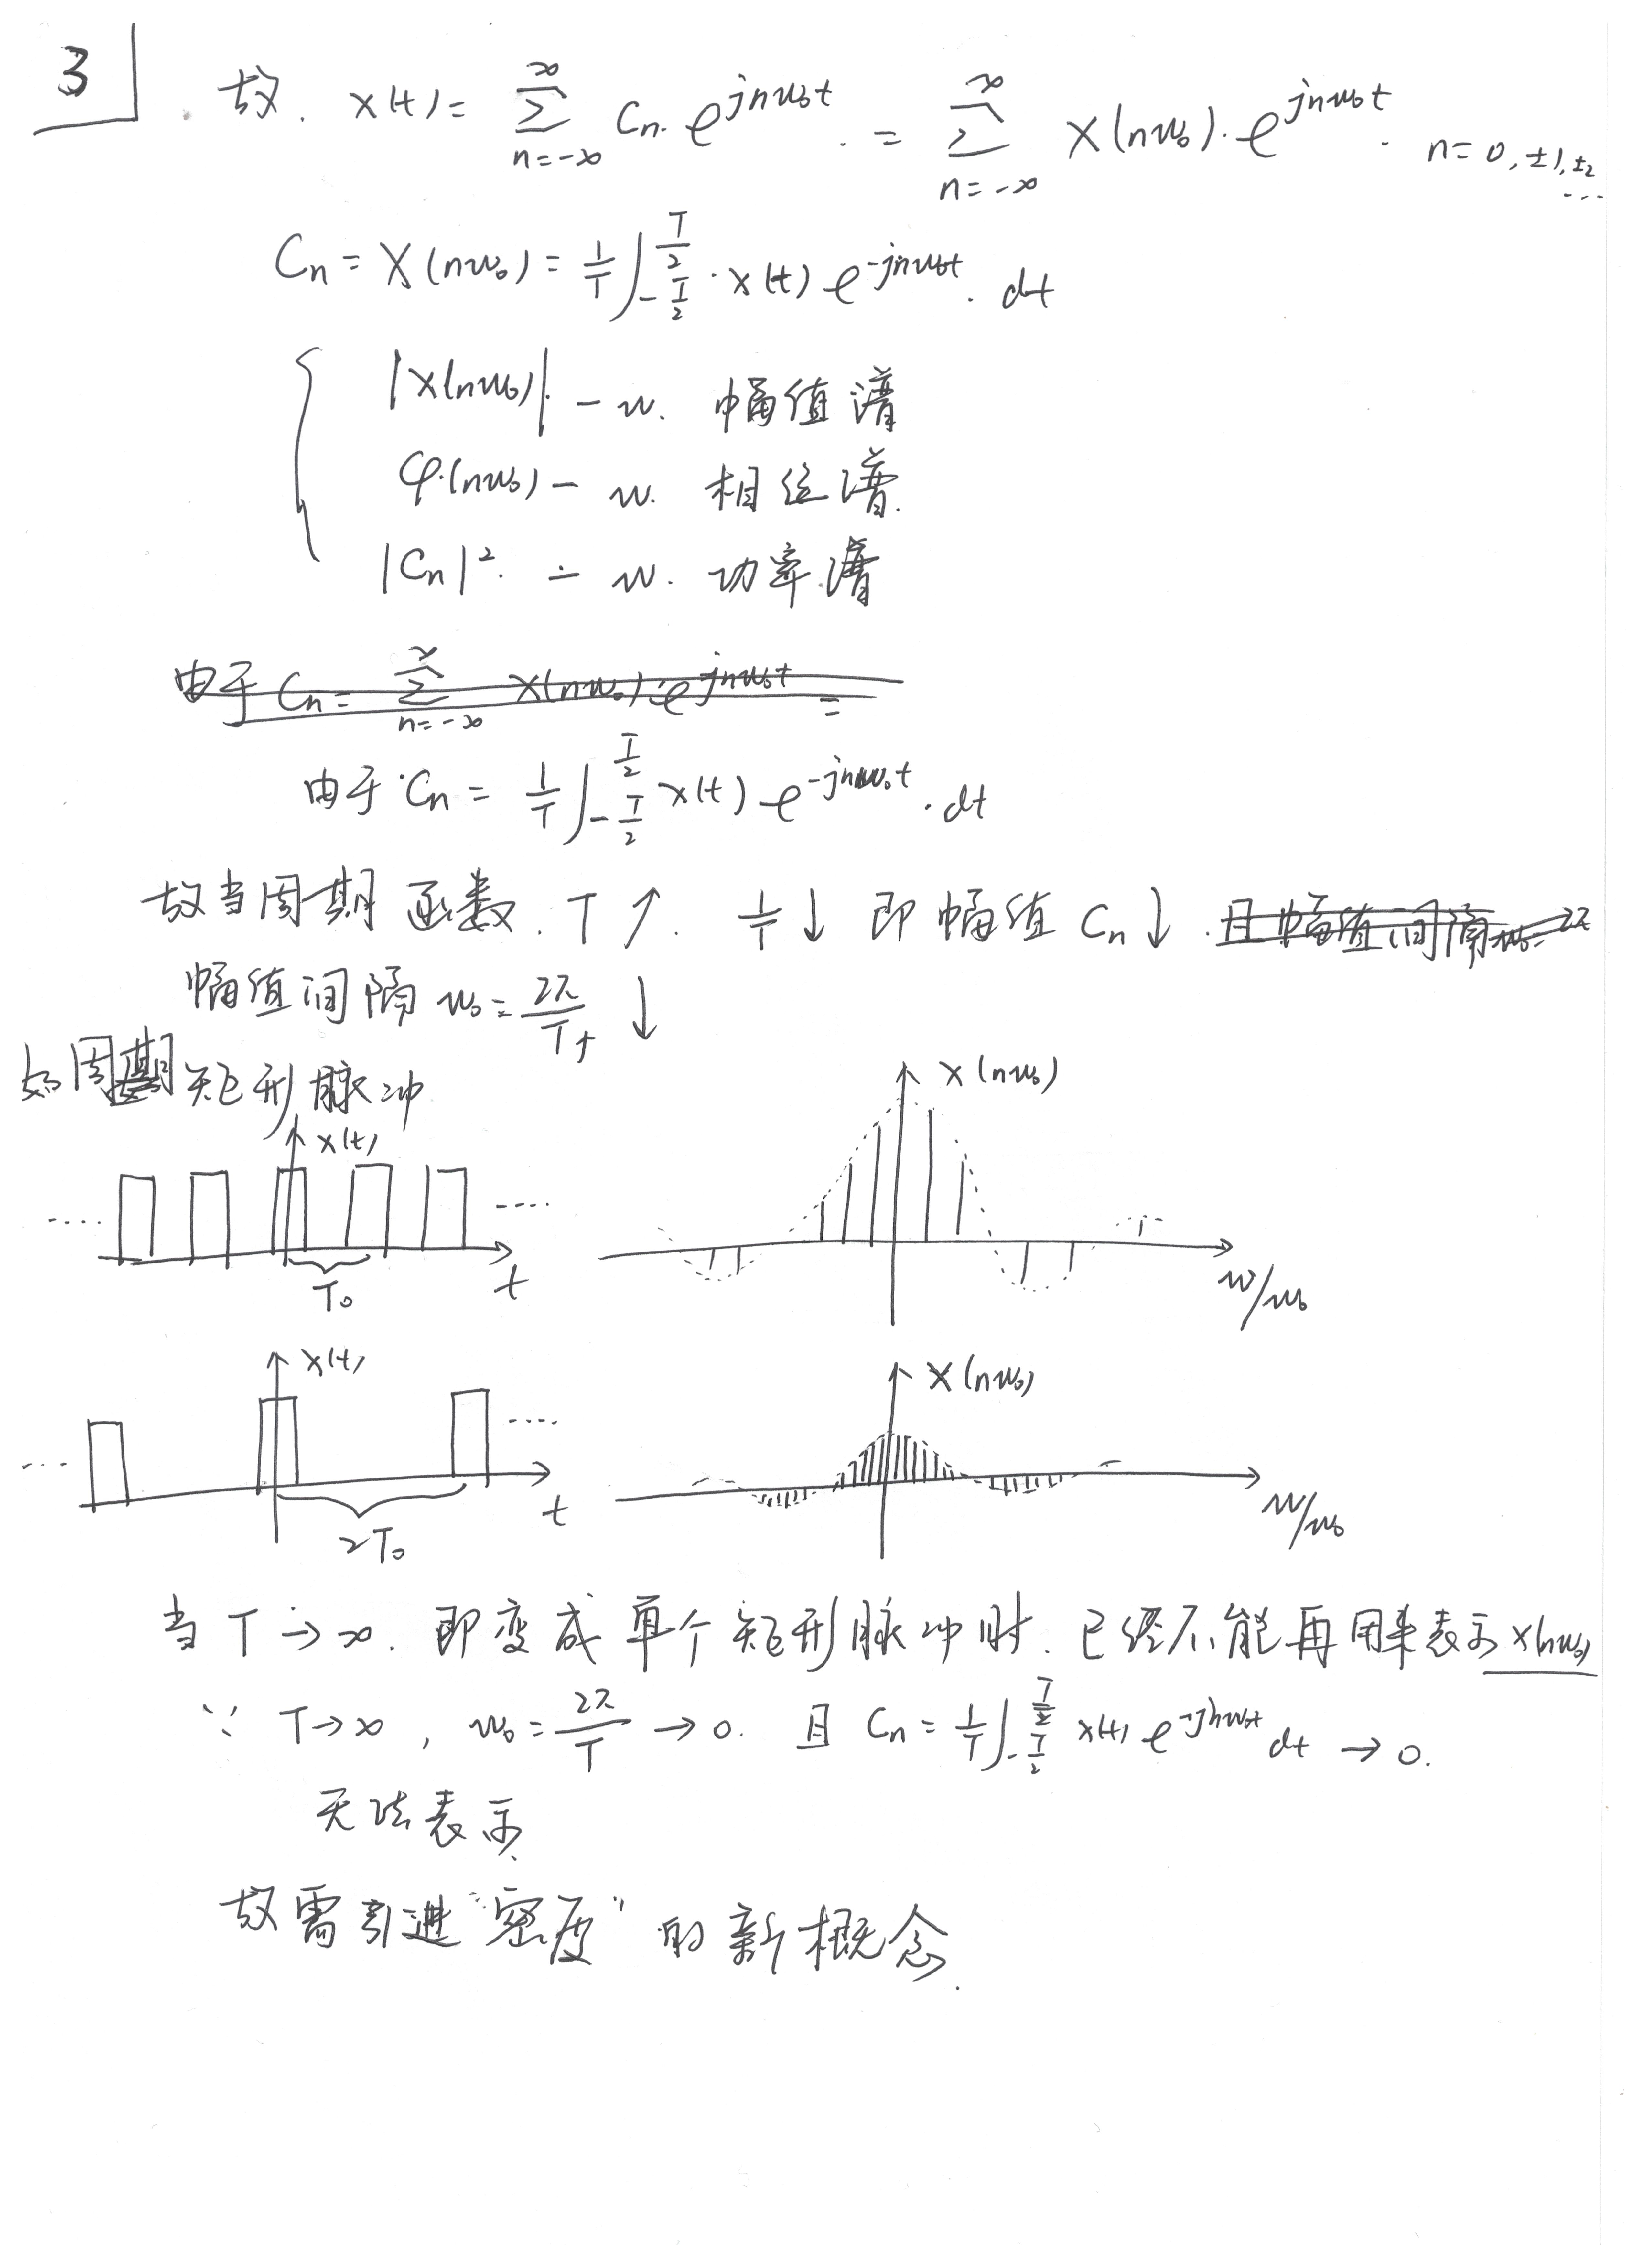 3
故. x(t) = ∑_{n=-∞}^{∞} Cn·e^{jnω₀t} = ∑_{n=-∞}^{∞} X(nω₀)·e^{jnω₀t}. n=0,±1,±2 ...
Cn = X(nω₀) = 1/T ∫_{-T/2}^{T/2} x(t) e^{-jnω₀t}. dt
|X(nω₀)| - ω. 幅值谱
φ(nω₀) - ω. 相位谱.
|Cn|². - ω. 功率谱
由于 Cn = ∑_{n=-∞}^{∞} X(nω₀)·e^{jnω₀t} =
由于 Cn = 1/T ∫_{-T/2}^{T/2} x(t) e^{-jnω₀t}. dt
故当周期函数. T↑. 1/T↓ 即幅值 Cn↓. 且幅值间隔 ω₀=2π
幅值间隔 ω₀ = 2π/T↑ ↓
如周期矩形脉冲
x(t)
X(nω₀)
.... ....
T₀
t
ω/ω₀
x(t)
X(nω₀)
... ....
2T₀
t
ω/ω₀
当 T→∞. 即变成单个矩形脉冲时. 已经不能再用来表示 X(nω₀)
∵ T→∞, ω₀ = 2π/T → 0. 且 Cn = 1/T ∫_{-T/2}^{T/2} x(t) e^{-jnω₀t} dt → 0.
无法表示.
故需引进“密度”的新概念.